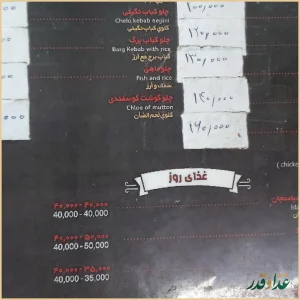 چلو کباب نگینی
Chelo kebab negini
كلوي كباب نگینی
۱۰۰,۰۰۰
چلو کباب برگ
Barg Kebab with rice
كباب برج مع ارز
۱۲۰,۰۰۰
چلو ماهی
Fish and rice
سمك و ارز
۱۳۰,۰۰۰
چلو گوشت گوسفندی
Chloe of mutton
كلوي لحم الضان
۱۴۰,۰۰۰
۱۶۰,۰۰۰
( chicke
غذای روز
۴۰,۰۰۰ - ۴۰,۰۰۰
40,000 - 40,000
۴۰,۰۰۰ - ۵۰,۰۰۰
40,000 - 50,000
۴۰,۰۰۰ - ۳۵,۰۰۰
40,000 - 35,000